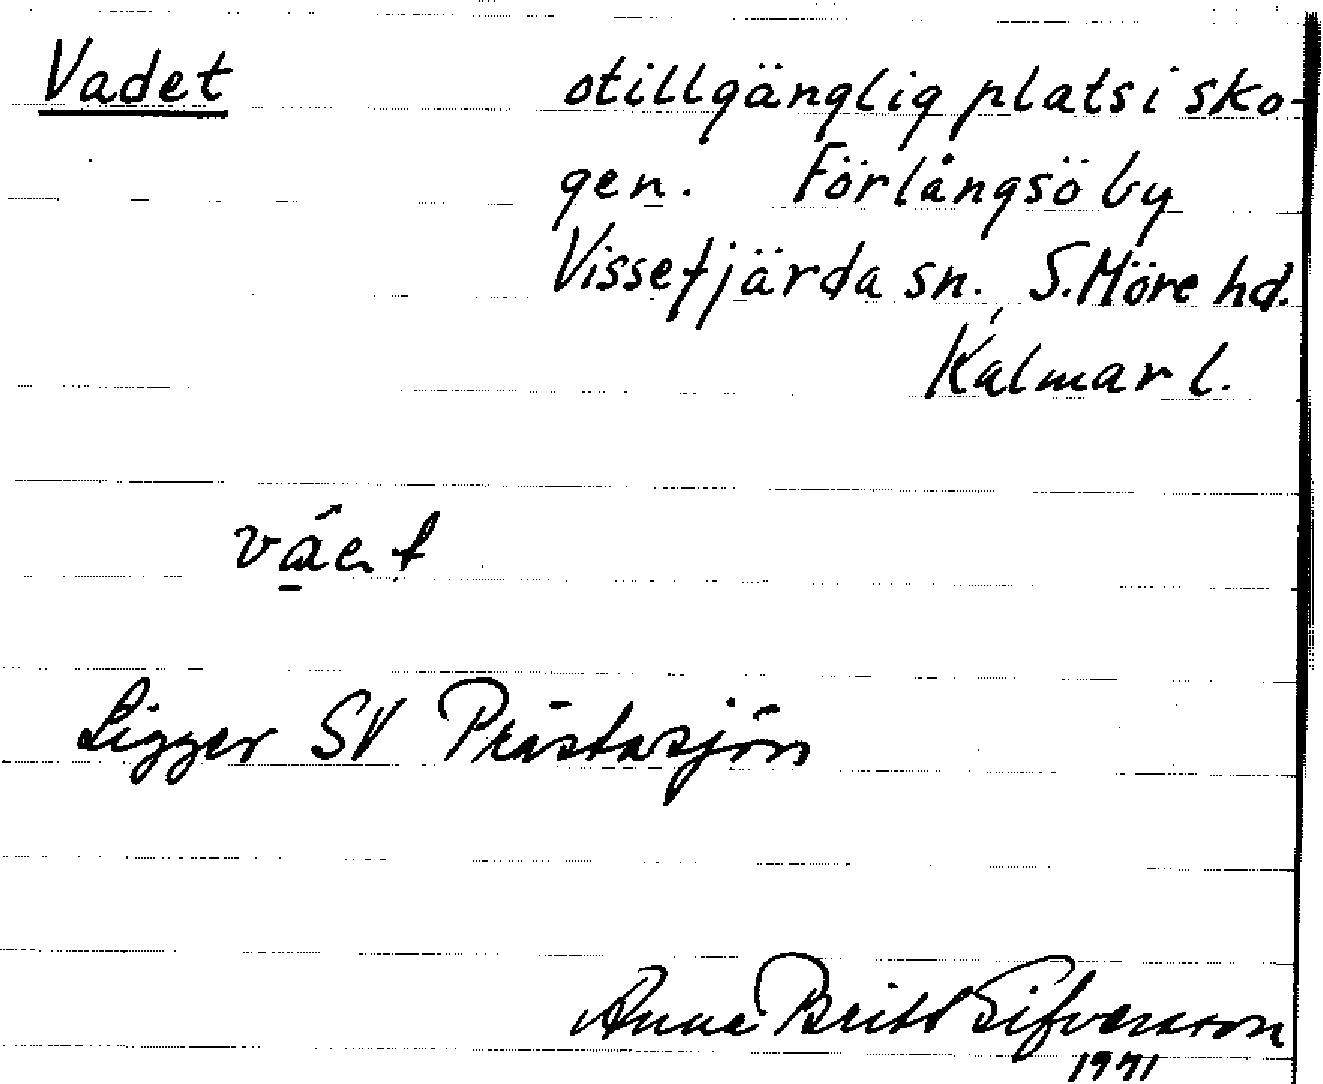 Vadet
otillgänglig plats i sko-
gen. Förlångsö by
Vissefjärda sn., S. Möre hd.
Kalmar l.
Ligger SV Prästasjön
Anna Britt Sifvensson
1971